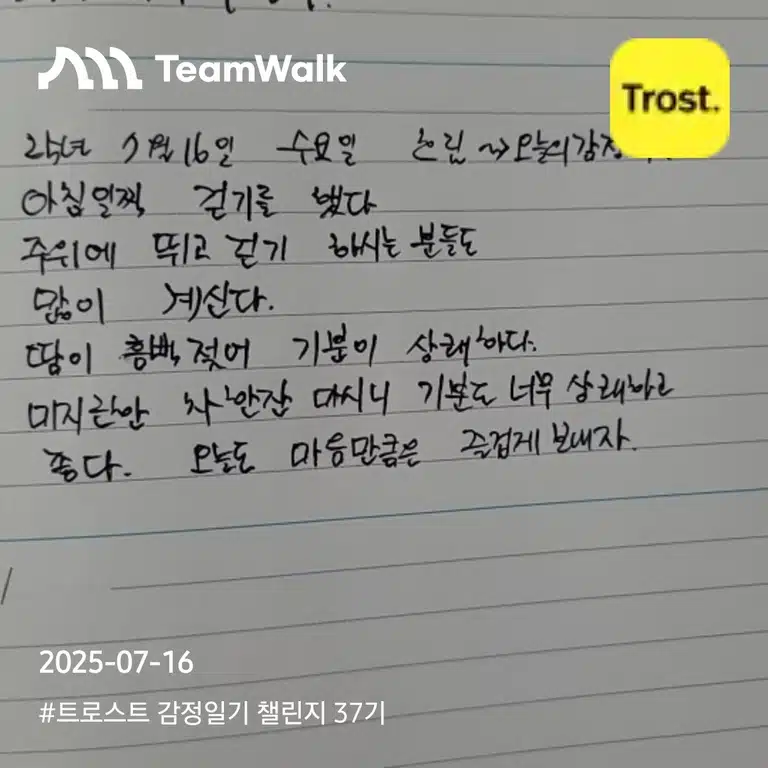 TeamWalk
Trost.
25년 7월 16일 수요일 흐림 ~> 오늘의 감정
아침일찍 걷기를 했다
주위에 뛰고 걷기 하시는 분들도
많이 계신다.
땀이 흠뻑 젖어 기분이 상쾌하다.
미지근한 차 한잔 마시니 기분도 너무 상쾌하고
좋다. 오늘도 마음만큼은 즐겁게 보내자.
2025-07-16
#트로스트 감정일기 챌린지 37기